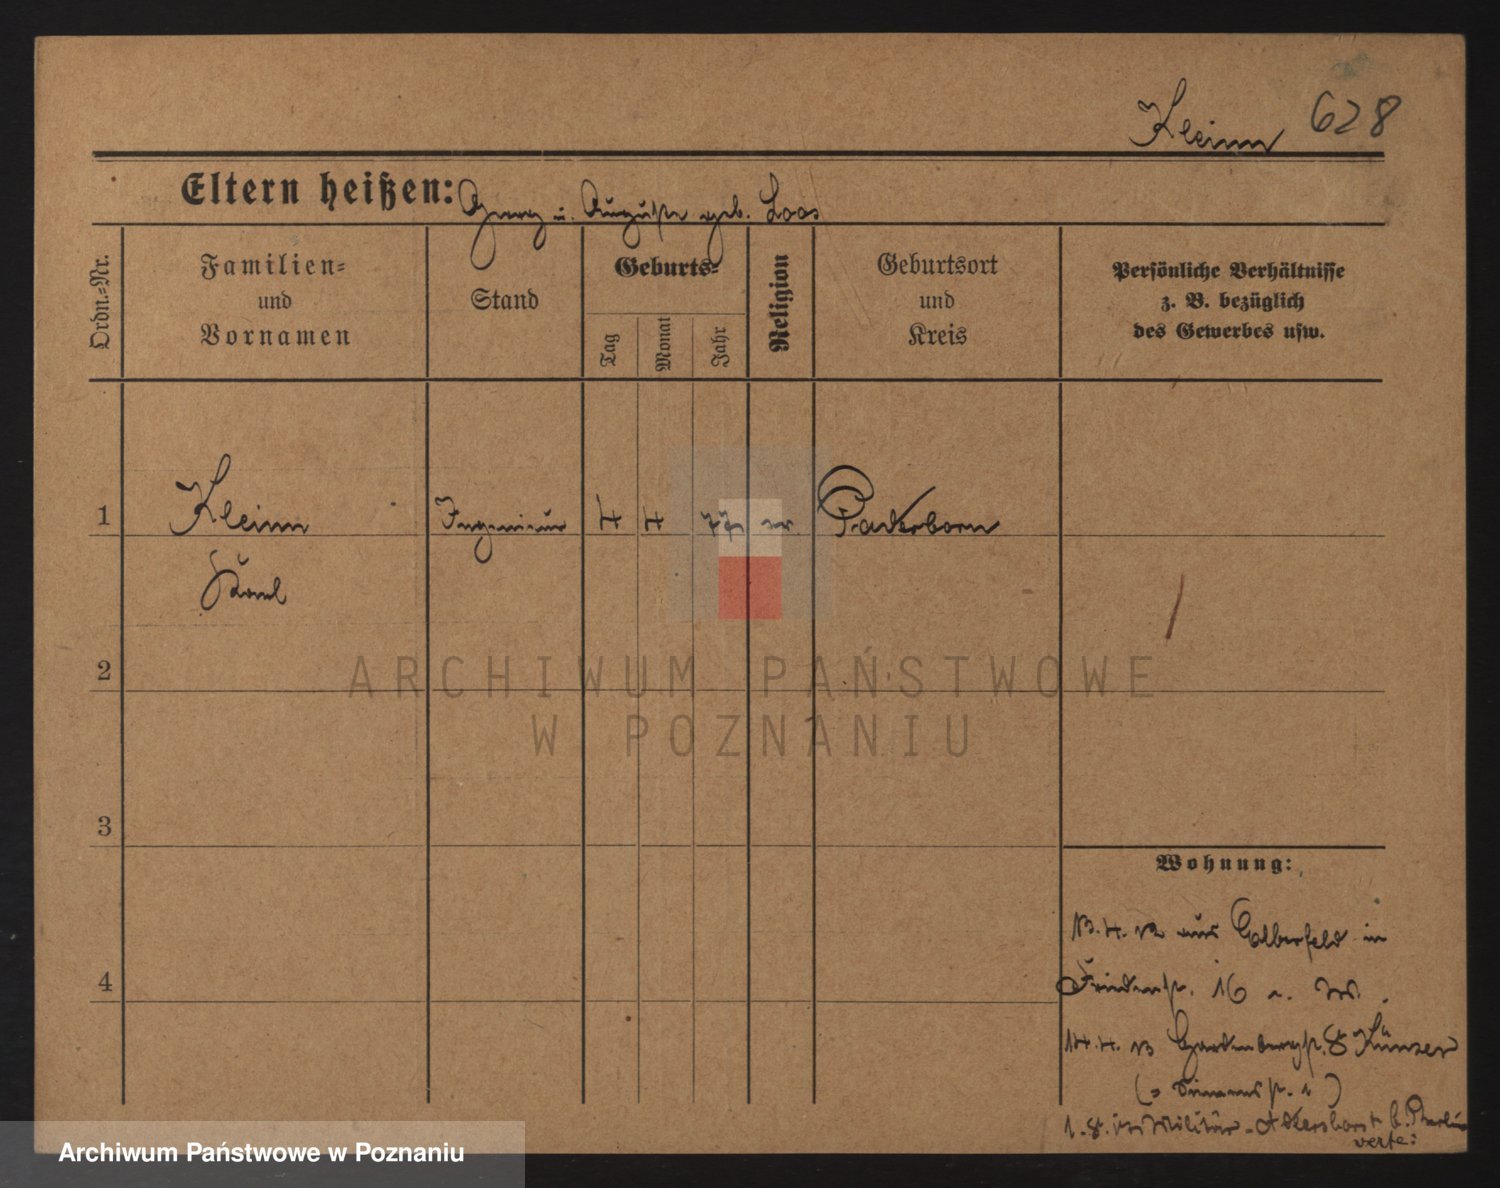 Kleinn 628
Eltern heißen: Georg u. Auguste geb. Loos
Ordn.-Nr.
Familien-
und
Vornamen
Stand
Geburts-
Tag
Monat
Jahr
Religion
Geburtsort
und
Kreis
Persönliche Verhältnisse
z. B. bezüglich
des Gewerbes usw.
1 Kleinn Ingenieur 4 4 77 ev Paderborn
Karl
2
ARCHIWUM PAŃSTWOWE
W POZNANIU
3
Wohnung:
13. 4. 12 aus Elberfeld in
4
16
14. 4. 8
1. 8. Militär - b. Berlin
verte:
Archiwum Państwowe w Poznaniu